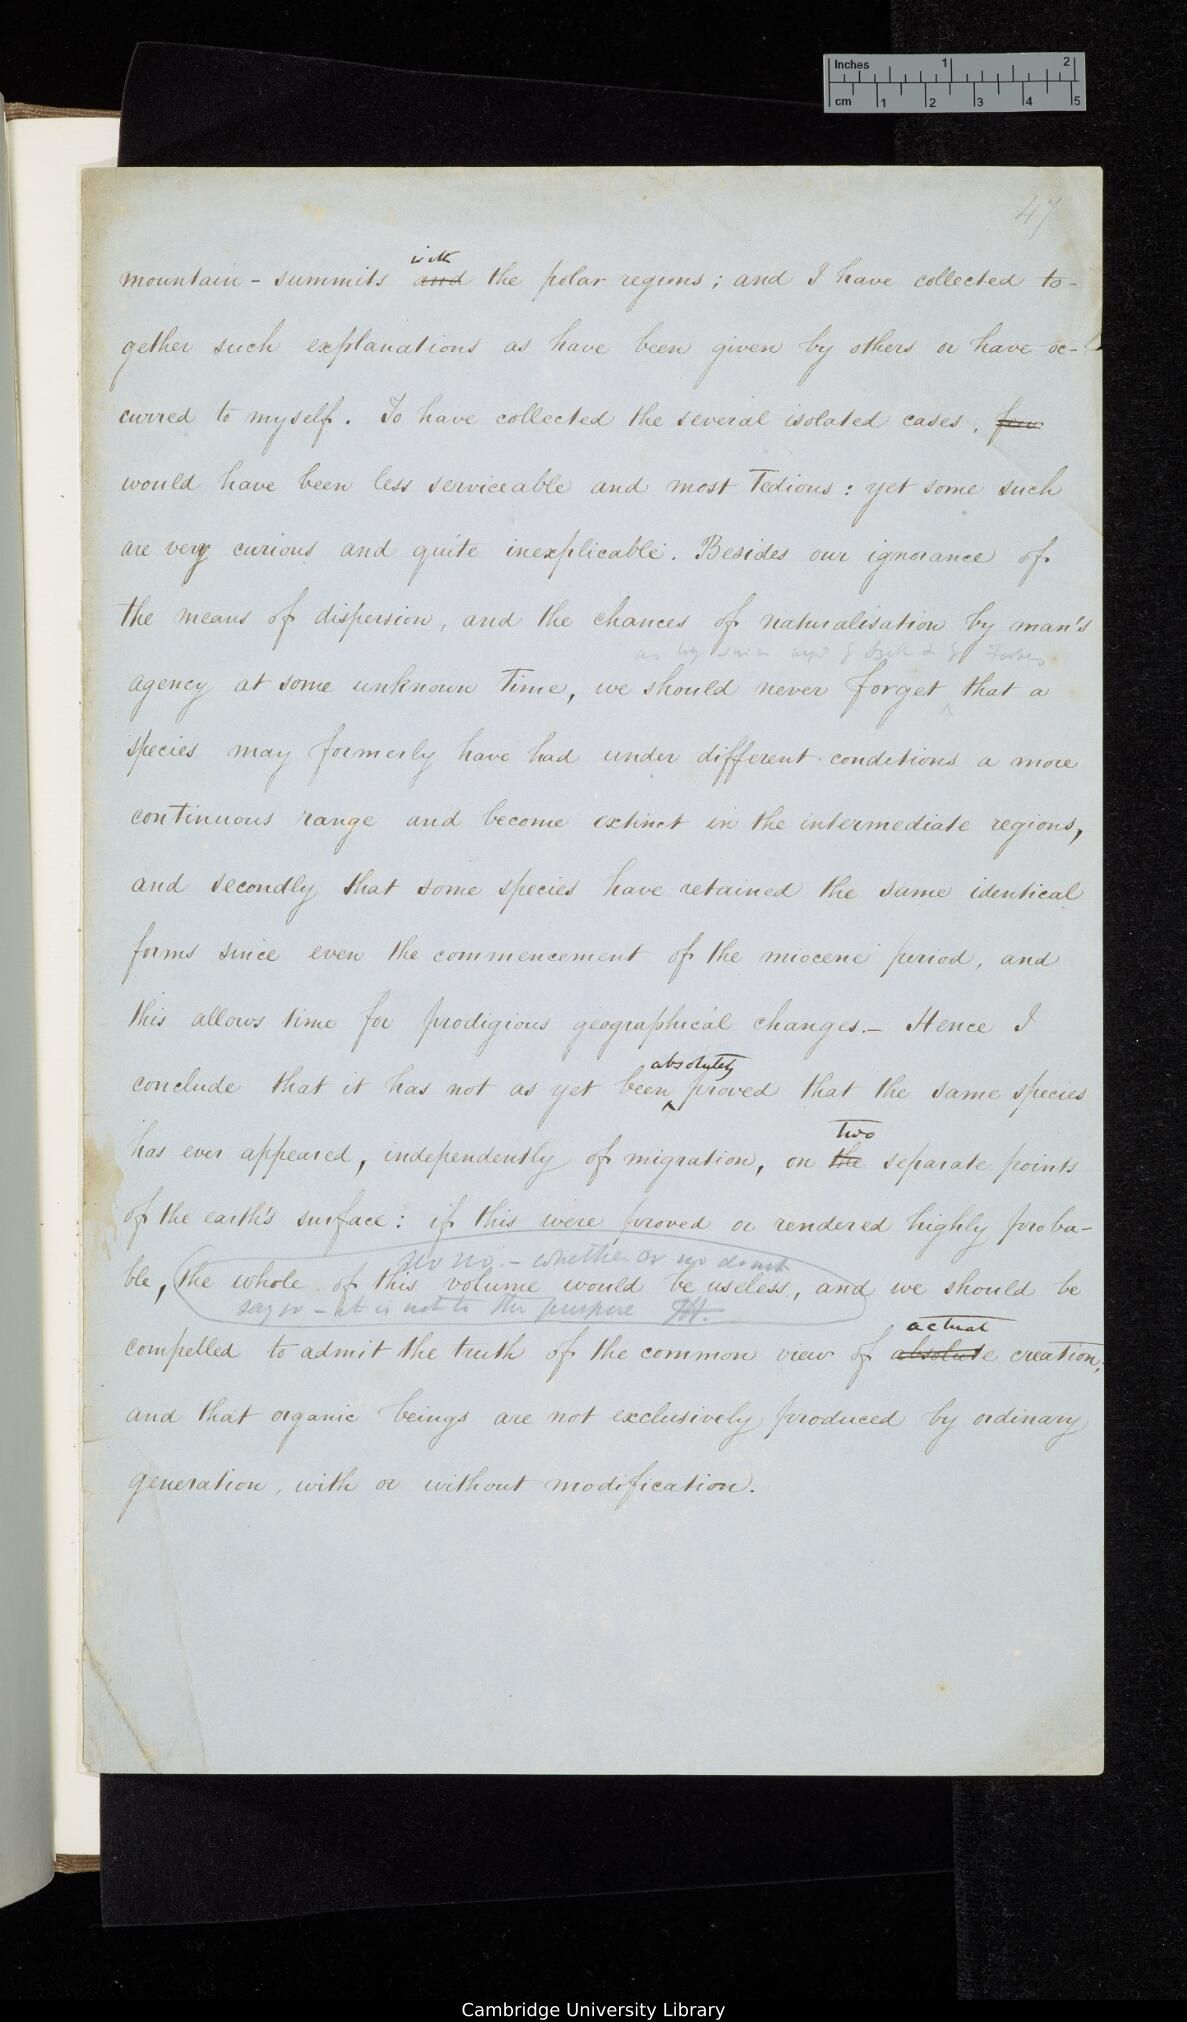 Inches 1 2
cm 1 2 3 4 5
47
with
mountain-summits and the polar regions; and I have collected to-
gether such explanations as have been given by others or have oc-
curred to myself. To have collected the several isolated cases, few
would have been less serviceable and most tedious: yet some such
are very curious and quite inexplicable. Besides our ignorance of
the means of dispersion, and the chances of naturalisation by man's
as Forbes
agency at some unknown time, we should never forget that a
species may formerly have had under different conditions a more
continuous range and become extinct in the intermediate regions,
and secondly that some species have retained the same identical
forms since even the commencement of the miocene period, and
this allows time for prodigious geographical changes.— Hence I
absolutely
conclude that it has not as yet been proved that the same species
two
has ever appeared, independently of migration, on the separate points
of the earth's surface: if this were proved or rendered highly proba-
no no.— whether or no do not
ble, the whole of this volume would be useless, and we should be
say so — it is not to the purpose
actual
compelled to admit the truth of the common view of absolute creation,
and that organic beings are not exclusively produced by ordinary
generation, with or without modification.
Cambridge University Library